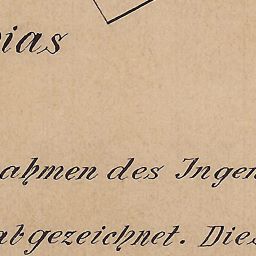 ias
ahmen des Ingen
abgezeichnet. Dies